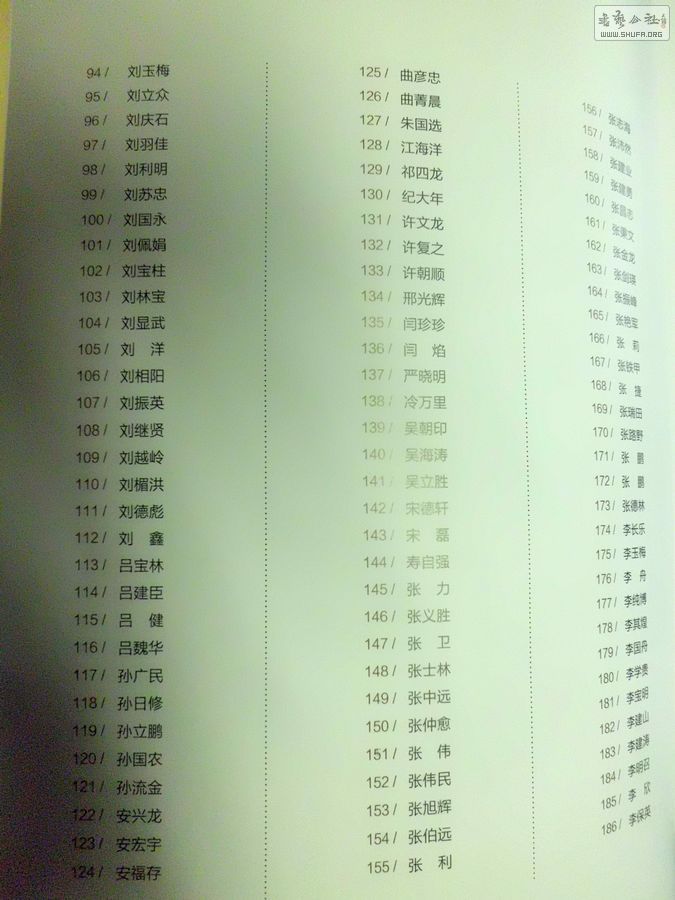 书艺公社
WWW.SHUFA.ORG
94 / 刘玉梅
95 / 刘立众
96 / 刘庆石
97 / 刘羽佳
98 / 刘利明
99 / 刘苏忠
100 / 刘国永
101 / 刘佩娟
102 / 刘宝柱
103 / 刘林宝
104 / 刘显武
105 / 刘　洋
106 / 刘相阳
107 / 刘振英
108 / 刘继贤
109 / 刘越岭
110 / 刘楣洪
111 / 刘德彪
112 / 刘　鑫
113 / 吕宝林
114 / 吕建臣
115 / 吕　健
116 / 吕魏华
117 / 孙广民
118 / 孙日修
119 / 孙立鹏
120 / 孙国农
121 / 孙流金
122 / 安兴龙
123 / 安宏宇
124 / 安福存
125 / 曲彦忠
126 / 曲菁晨
127 / 朱国选
128 / 江海洋
129 / 祁四龙
130 / 纪大年
131 / 许文龙
132 / 许复之
133 / 许朝顺
134 / 邢光辉
135 / 闫珍珍
136 / 闫　焰
137 / 严晓明
138 / 冷万里
139 / 吴朝印
140 / 吴海涛
141 / 吴立胜
142 / 宋德轩
143 / 宋　磊
144 / 寿自强
145 / 张　力
146 / 张义胜
147 / 张　卫
148 / 张士林
149 / 张中远
150 / 张仲愈
151 / 张　伟
152 / 张伟民
153 / 张旭辉
154 / 张伯远
155 / 张　利
156 / 张志海
157 / 张沛然
158 / 张建业
159 / 张建勇
160 / 张昌志
161 / 张秉文
162 / 张金龙
163 / 张剑瑛
164 / 张振峰
165 / 张艳军
166 / 张　莉
167 / 张铁甲
168 / 张　捷
169 / 张瑞田
170 / 张路野
171 / 张　鹏
172 / 张　鹏
173 / 张德林
174 / 李长乐
175 / 李玉梅
176 / 李　舟
177 / 李纯博
178 / 李其煌
179 / 李国舟
180 / 李学贵
181 / 李宝明
182 / 李建山
183 / 李建涛
184 / 李明召
185 / 李　欣
186 / 李保英